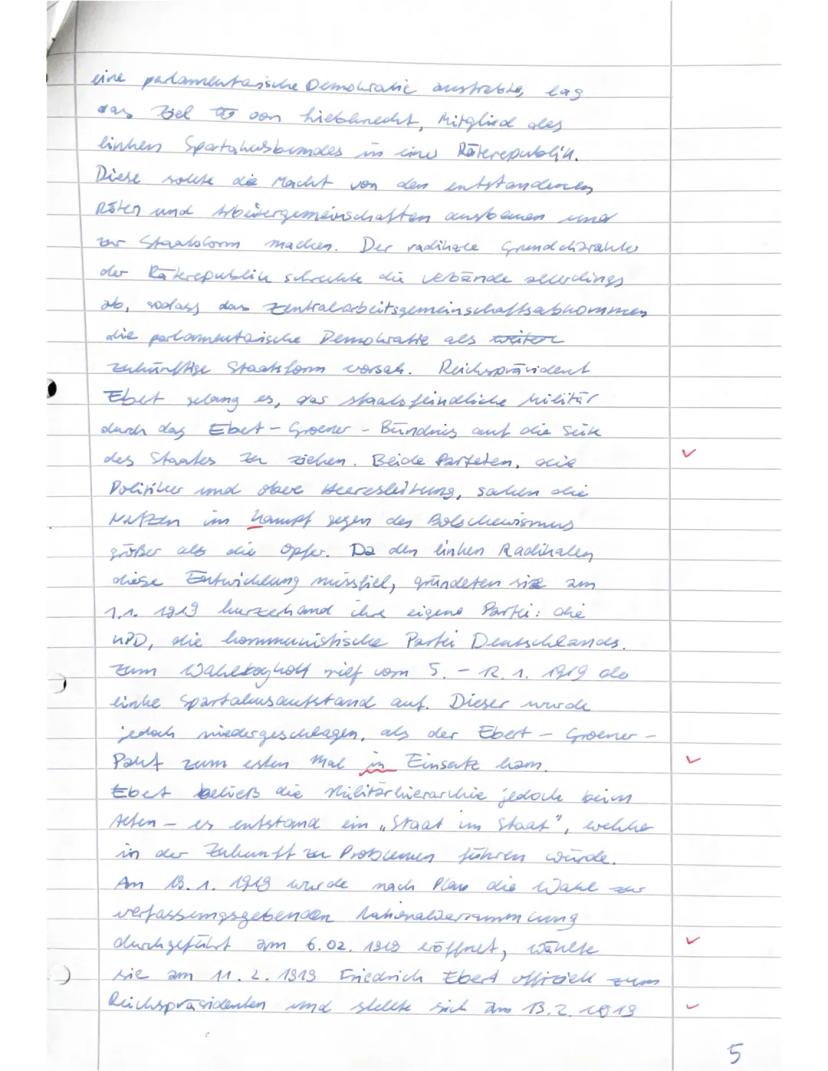 eine parlamentarische Demokratie anstrebte, lag
das Ziel von Liebknecht, Mitglied des
linken Spartakusbundes in einer Räterepublik.
Diese sollte die Macht von den entstandenen
Räten und Arbeitergemeinschaften ausbauen und
zur Staatsform machen. Der radikale Grundcharakter
der Räterepublik schreckte die Verbände allerdings
ab, sodass das Zentralarbeitsgemeinschaftsabkommen
die parlamentarische Demokratie als weitere
zukünftige Staatsform vorsah. Reichspräsident
Ebert gelang es, das staatsfeindliche Militär
durch das Ebert-Groener-Bündnis auf die Seite
des Staates zu ziehen. Beide Parteien, die
Politiker und obere Heeresleitung, sahen die
Nutzen im Kampf gegen den Bolschewismus
größer als die Opfer. Da den linken Radikalen
diese Entwicklung missfiel, gründeten sie am
1.1. 1919 kurzerhand ihre eigene Partei: die
KPD, die kommunistische Partei Deutschlands.
Zum Wahlboykott rief vom 5. - 12. 1. 1919 der
linke Spartakusaufstand auf. Dieser wurde
jedoch niedergeschlagen, als der Ebert-Groener-
Pakt zum ersten Mal in Einsatz kam.
Ebert beließ die Militärhierarchie jedoch beim
Alten - es entstand ein „Staat im Staat", welcher
in der Zukunft zu Problemen führen würde.
Am 19. 1. 1919 wurde nach Plan die Wahl zur
verfassungsgebenden Nationalversammlung
durchgeführt am 6.02. 1919 eröffnet, wählte
sie am 11. 2. 1919 Friedrich Ebert offiziell zum
Reichspräsidenten und stellte sich am 13. 2. 1919
5